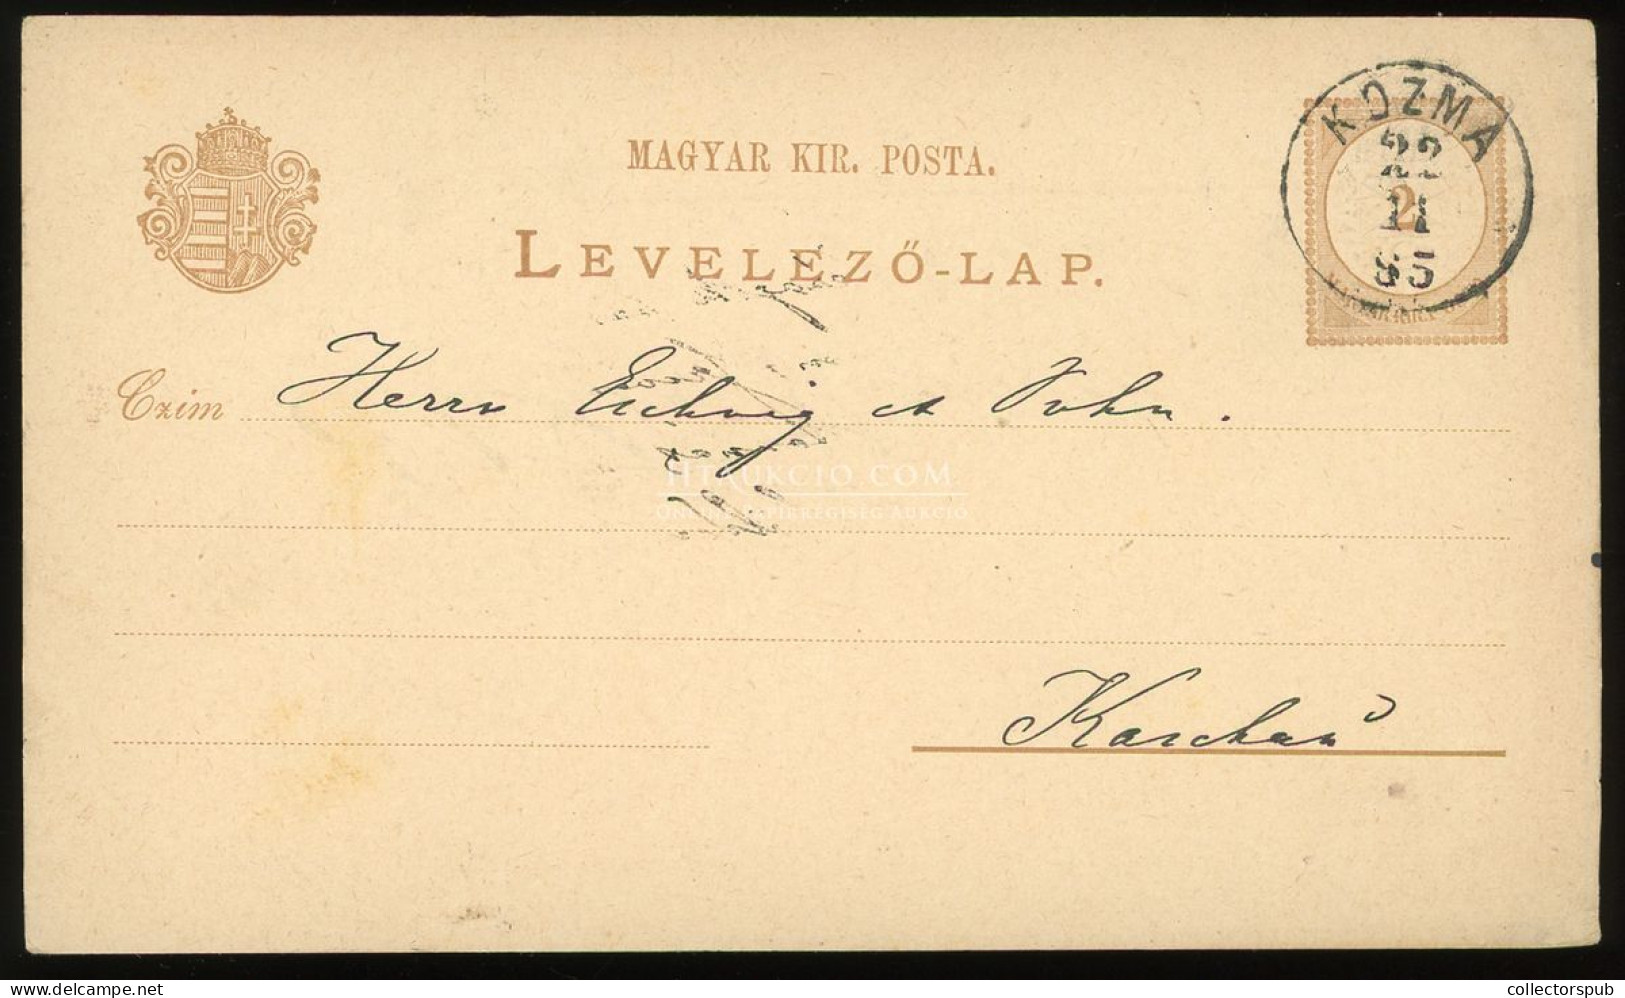 MAGYAR KIR. POSTA.
LEVELEZŐ-LAP.
KOZMA
22
11
85
2
Czim Herrn Eichwig et Sohn.
HTAUKCIO.COM.
ONLINE PAPÍRRÉGISÉG AUKCIÓ
Kaschau
collectorspub